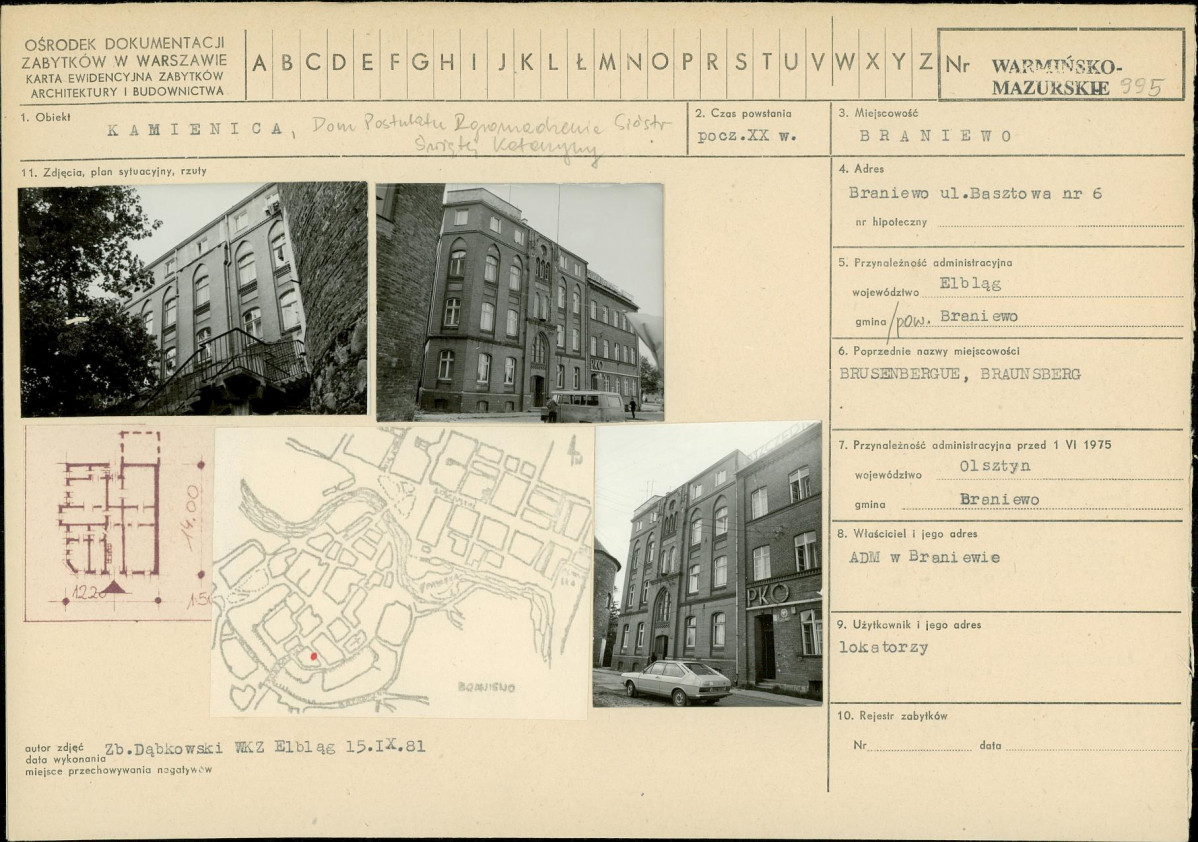 OŚRODEK DOKUMENTACJI
ZABYTKÓW W WARSZAWIE
KARTA EWIDENCYJNA ZABYTKÓW
ARCHITEKTURY I BUDOWNICTWA
A B C D E F G H I J K L Ł M N O P R S T U V W X Y Z
Nr WARMIŃSKO-
MAZURSKIE 995
1. Obiekt
KAMIENICA, Dom Postulatu Zgromadzenia Sióstr
Świętej Katarzyny
2. Czas powstania
pocz.XX w.
3. Miejscowość
BRANIEWO
11. Zdjęcia, plan sytuacyjny, rzuty
4. Adres
Braniewo ul.Basztowa nr 6
nr hipoteczny
5. Przynależność administracyjna
województwo Elbląg
gmina/pow. Braniewo
6. Poprzednie nazwy miejscowości
BRUSENBERGUE, BRAUNSBERG
7. Przynależność administracyjna przed 1 VI 1975
województwo Olsztyn
gmina Braniewo
8. Właściciel i jego adres
ADM w Braniewie
9. Użytkownik i jego adres
lokatorzy
10. Rejestr zabytków
Nr data
PKO
14.00
1220
1:50
PKO
BRANIEWO
autor zdjęć Zb.Dąbkowski WKZ Elbląg 15.IX.81
data wykonania
miejsce przechowywania negatywów